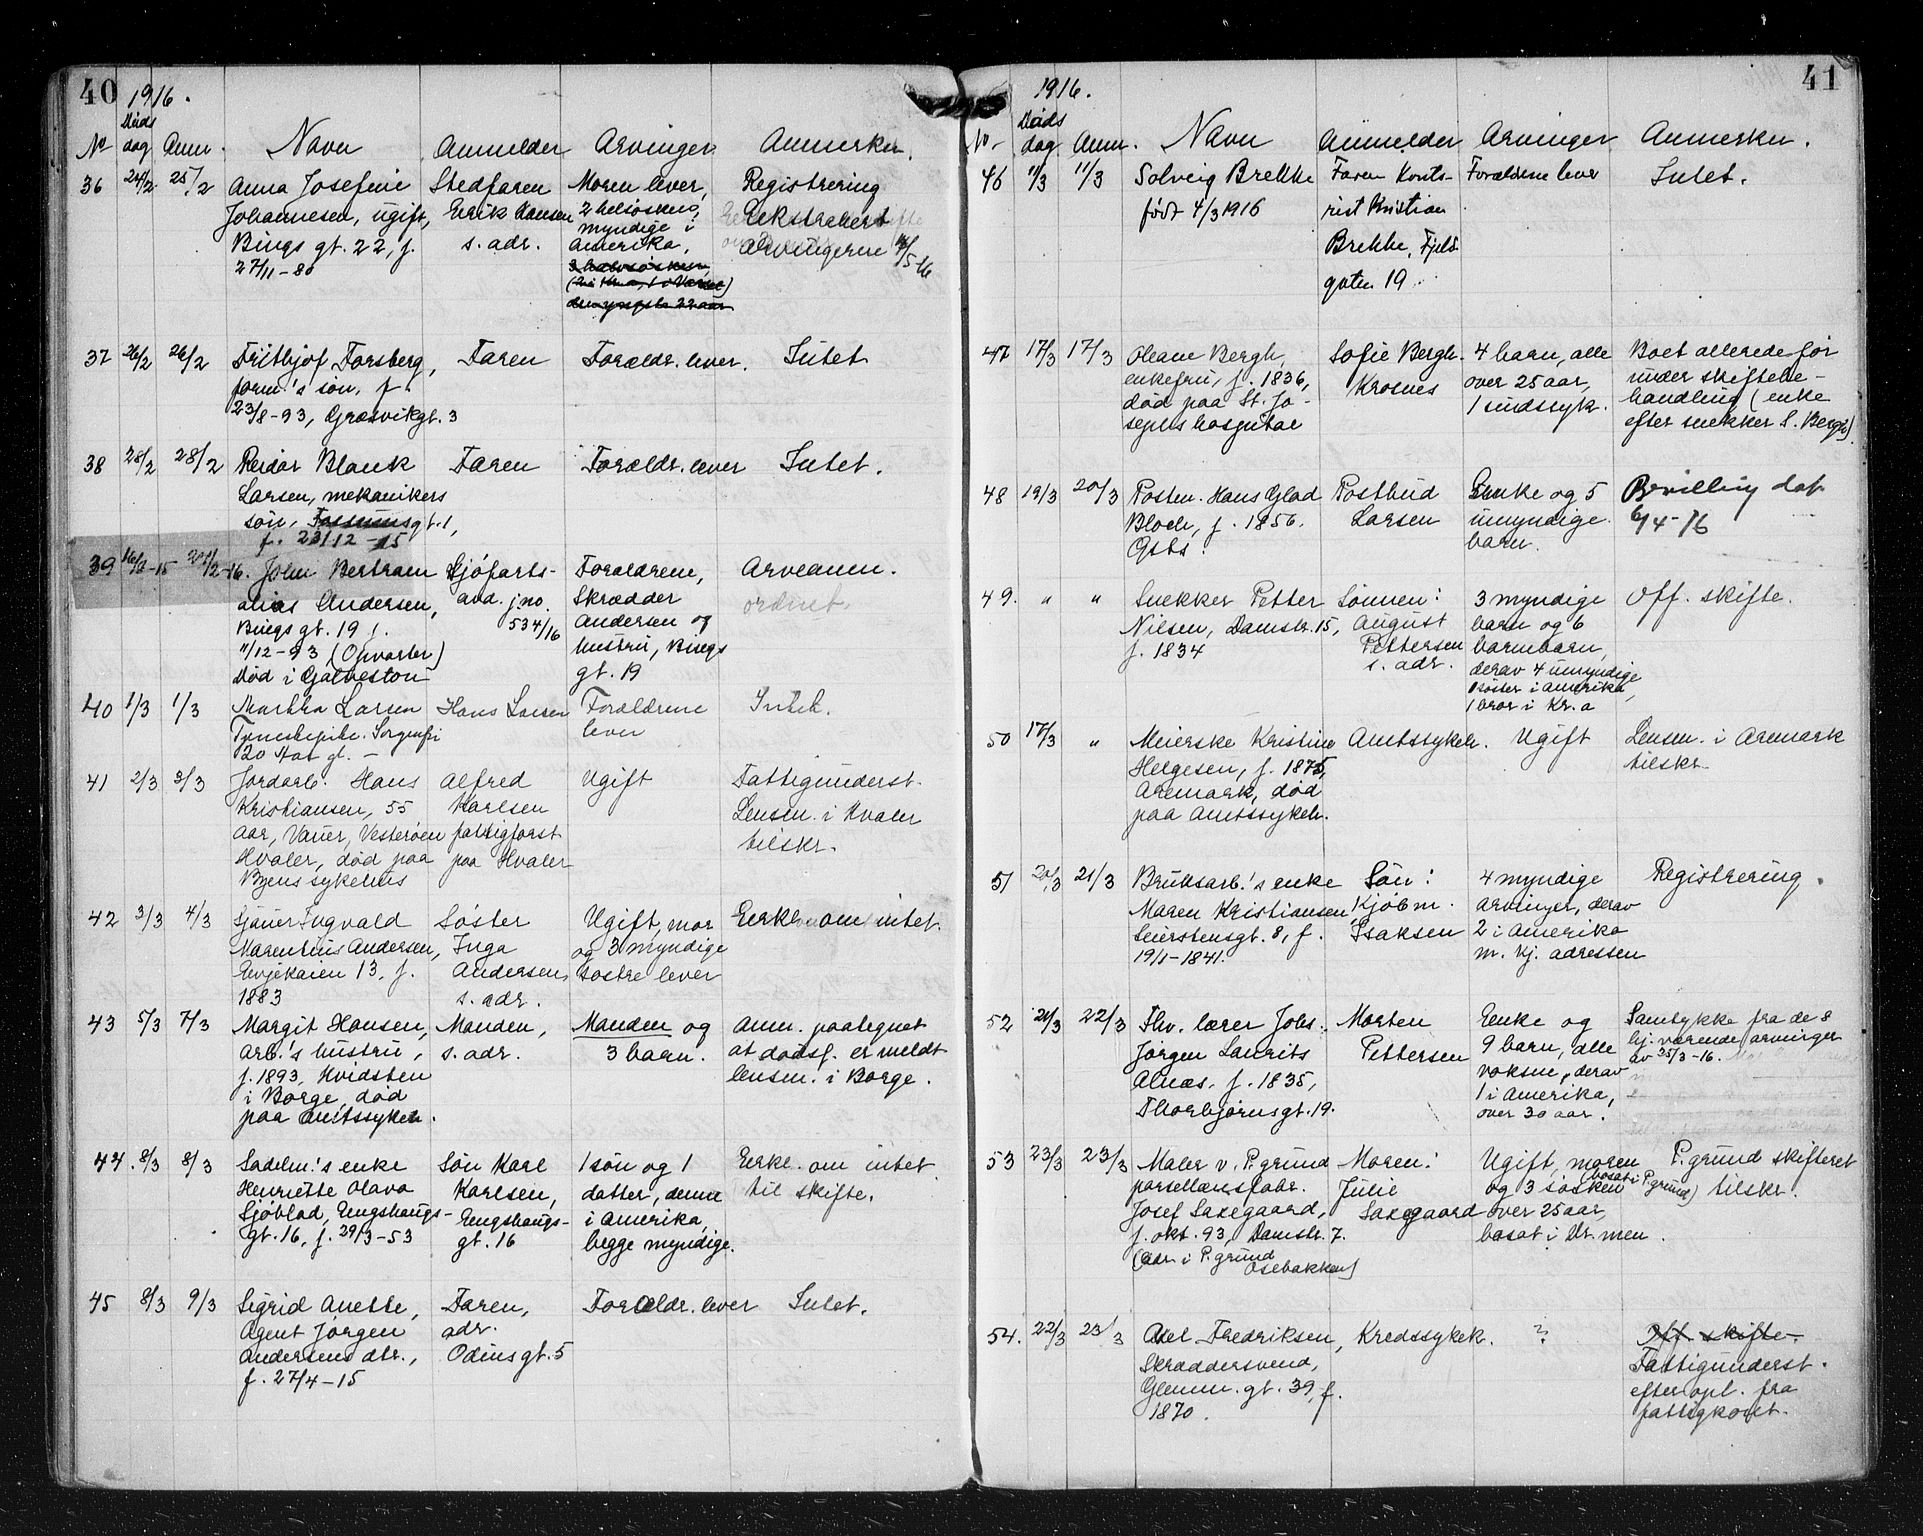 40
1916.
Døds
No dag Anm. Navn Anmelder Arvinger Anmerkn.
36 24/2 25/2 Anna Josefine Stedfaren Moren lever, Registrering
Johannesen, ugift, Erik Hansen 2 helsøsken, Ekstrahert
Bings gt. 22, f. s. adr. myndige i arvingerne
27/11-80 Amerika, 5-16
3 halvsøsken,
den yngste 22 aar
37 26/2 26/2 Frithjof Forsberg, Faren Forældr. lever. Intet
form.'s søn, f.
23/8-93, Græsvikgt. 3
38 28/2 28/2 Reidar Blank Faren Forældr. lever Intet.
Larsen, mekanikers
søn, Fossumsgt. 1,
f. 23/12-15
39 John Bertram Sjøfarts- Forældrene, Arveanm.
alias Andersen, avd. j.no. Skrædder ordnet.
Bingsgt. 19, f. 534/16 Andersen og
11/12-93, (Opvarter) hustru, Bings
Død i Galveston gt. 19
40 1/3 1/3 Martha Larsen Hans Larsen Forældrene Intet.
Sorgenfri lever
20 Aar gl. -
41 2/3 3/3 Jordarb. Hans Alfred Ugift Fattigunderst.
Kristiansen, 55 Karlsen Lensm. i Hvaler
aar, Vauer, Vesterøen fattigforst tilskr.
Hvaler, død paa paa Hvaler
Byens sykehus
42 3/3 4/3 Sjauer Ingvald Søster Ugift, mor Erkl. om intet.
Marentius Andersen, Inga og 3 myndige
Evjekaien 13, f. Andersen, søstre lever
1883 s. adr.
43 5/3 7/3 Margit Hansen, Manden, Manden og Anm. paategnet
arb.'s hustru, s. adr. 3 barn. at dødsf. er meldt
f. 1893, Hvidsten lensm. i Borge.
i Borge, død
paa Amtssykeh.
44. 8/3 8/3 Sadelm.'s enke Søn Karl 1 søn og 1 Erkl. om intet
Henriette Olava Karlsen, datter, denne til skifte.
Sjøblad, Engshaugs- Engshaugs- i Amerika,
gt. 16, f. 29/3-53 gt. 16 begge myndige.
45 8/3 9/3 Sigrid Anette, Faren, Forældr. lever Intet.
Agent Jørgen adr.
Andersens dtr., Odinsgt. 5
f. 27/4-15
41
1916.
Døds
No. dag Anm. Navn Anmelder Arvinger Anmerkn.
46 11/3 11/3 Solveig Brekke Faren Konto- Forældrene lever Intet.
født 4/3 1916 rist Kristian
Brekke, Fjeld
gaten 19.
47 17/3 17/3 Oleane Bergh, Sofie Bergh. 4 barn, alle Boet allerede før
enkefru, f. 1836, Krosnes over 25 aar, under skiftebe-
død paa St. Jo- 1 sindssyk. handling (enke
sephs hospital efter snekker S. Bergh).
48 19/3 20/3 Postm. Hans Glad Postbud Enke og 5 Bevilling dat
Bloch, f. 1856. Larsen umyndige 6/4-16
Gsbs. barn.
49. " " Snekker Petter Sønnen: 3 myndige Off. skifte.
Nilsen, Damstr. 15, August barn og 6
f. 1834 Pettersen barnebarn,
s. adr. derav 4 umyndige
1 søster i Amerika,
1 bror i Kr.a
50 17/3 " Meierske Kristine Amtssykeh. Ugift Lensm. i Aremark
Helgesen, f. 1875, tilskr.
Aremark, død
paa Amtssykeh.
51 20/3 21/3 Bruksarb.'s enke Søn: 4 myndige Registrering.
Maren Kristiansen, Kjøbm. arvinger, derav
Seierstensgt. 8, f. Isaksen 2 i Amerika
19/1-1841. m. kj. adressen
52 21/3 22/3 Fhv. lærer Johs. Morten Enke og Samtykke fra de 8
Jørgen Laurits Pettersen 9 barn, alle hj. værende arvinger
Alnæs, f. 1835, voksne, derav av 25/3-16.
Thorbjørnsgt. 19. 1 i Amerika,
over 30 aar.
53 23/3 23/3 Maler v. P.grund Moren: Ugift, moren P.grund skifteret
porsellænsfabr. Julie (bosat i P.grund) og 3 søsken tilskr.
Josef Saxegaard, Saxegaard over 25 aar,
f. okt. 93, Damstr. 7. bosat i Dr.men.
(adr. i P.grund
Osebakken)
54. 22/3 23/3 Axel Fredriksen, Kredssykeh. ? Off. skifte.
Skræddersvend, Fattigunderst.
Glemm. gt. 39, f. efter opl. fra
1870. fattigkont.